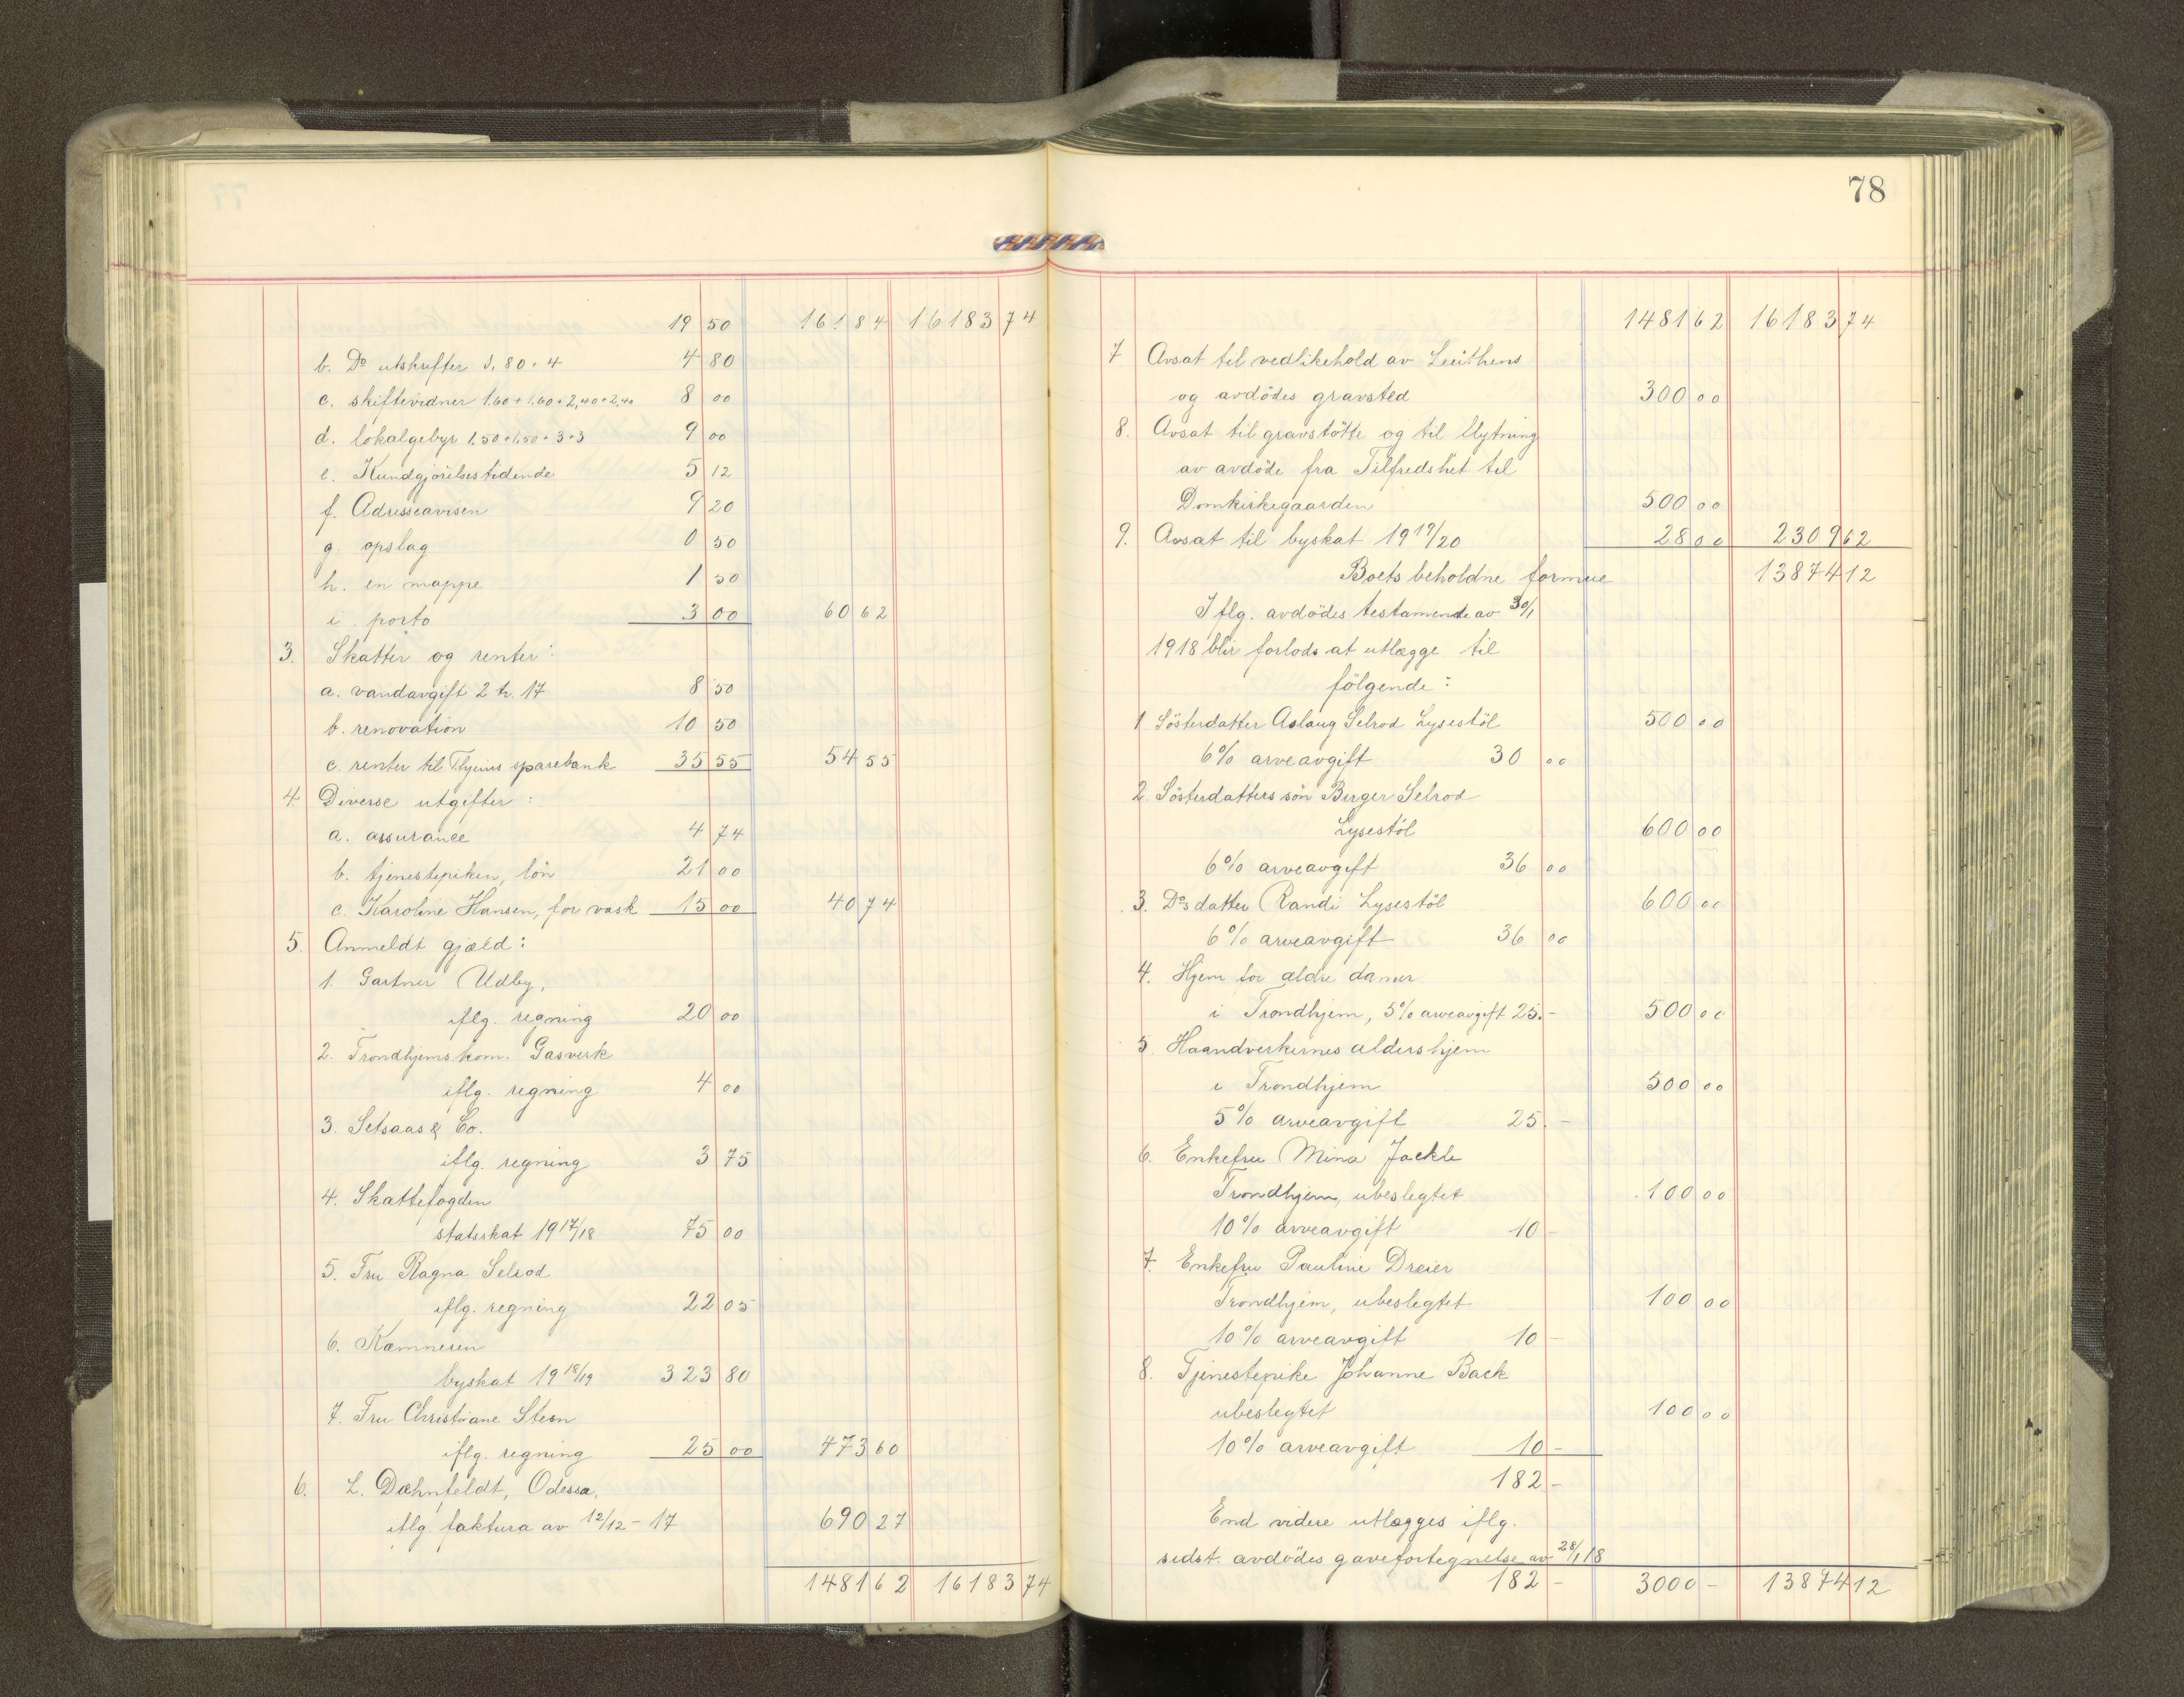 19 50 161 84 16183 74
b. Do utskrifter 0,80 + 4 4 80
c. skiftevidner 1.60 + 1,60 + 2,40 + 2,40 8 00
d. lokalgebyr 1,50 + 1,50 + 3 + 3 9 00
e. Kundgjörelsestidende 5 12
f. Adresseavisen 9 20
g. opslag 0 50
h. en mappe 1 50
i. porto 3 00 60 62
3. Skatter og renter:
a. vandavgift 2 h. 17 8 50
b. renovation 10 50
c. renter til T.hjems sparebank 35 55 54 55
4 Diverse utgifter:
a. assurance 4 74
b. tjenestepiken, lön 21 00
c. Karoline Hansen, for vask 15 00 40 74
5. Anmeldt gjæld:
1. Gartner Udby,
iflg. regning 20 00
2. Trondhjems kom. Gasverk
iflg. regning 4 00
3. Setsaas & Co.
iflg. regning 3 75
4. Skattefogden
statsskat 19 17/18 75 00
5. Fru Ragna Selrod
iflg. regning 22 05
6. Kæmneren
byskat 19 18/19 323 80
7. Fru Christiane Steen
iflg. regning 25 00 473 60
6. L. Dæhnfeldt, Odessa,
iflg. faktura av 12/12 - 17 690 27
1481 62 16183 74
78
1481 62 16183 74
7 Avsat til vedlikehold av Leuthens
og avdödes gravsted 300 00
8. Avsat til gravstötte og til flytning
av avdöde fra Tilfredshet til
Domkirkegaarden 500 00
9. Avsat til byskat 19 19/20 28 00 2309 62
Boets beholdne formue 13874 12
Iflg. avdödes testamente av 30/1
1918 blir forlods at utlægge til
fölgende:
1. Sösterdatter Aslaug Selrod Lysestöl 500 00
6% arveavgift 30 00
2. Sösterdatters sön Birger Selrod
Lysestöl 600 00
6% arveavgift 36 00
3. Dos datter Randi Lysestöl 600 00
6% arveavgift 36 00
4. Hjem for ældre damer
i Trondhjem, 5% arveavgift 25.- 500 00
5. Haandverkernes aldershjem
i Trondhjem 500 00
5% arveavgift 25.-
6. Enkefru Mina Jackle
Trondhjem, ubeslegtet 100 00
10% arveavgift 10 -
7. Enkefru Pauline Dreier
Trondhjem, ubeslegtet 100 00
10% arveavgift 10 -
8. Tjenestepike Johanne Back
ubeslegtet 100 00
10% arveavgift 10 -
182 -
End videre utlægges iflg.
sidst. avdödes gavefortegnelse av 28/1 18
182 - 3000 - 13874 12